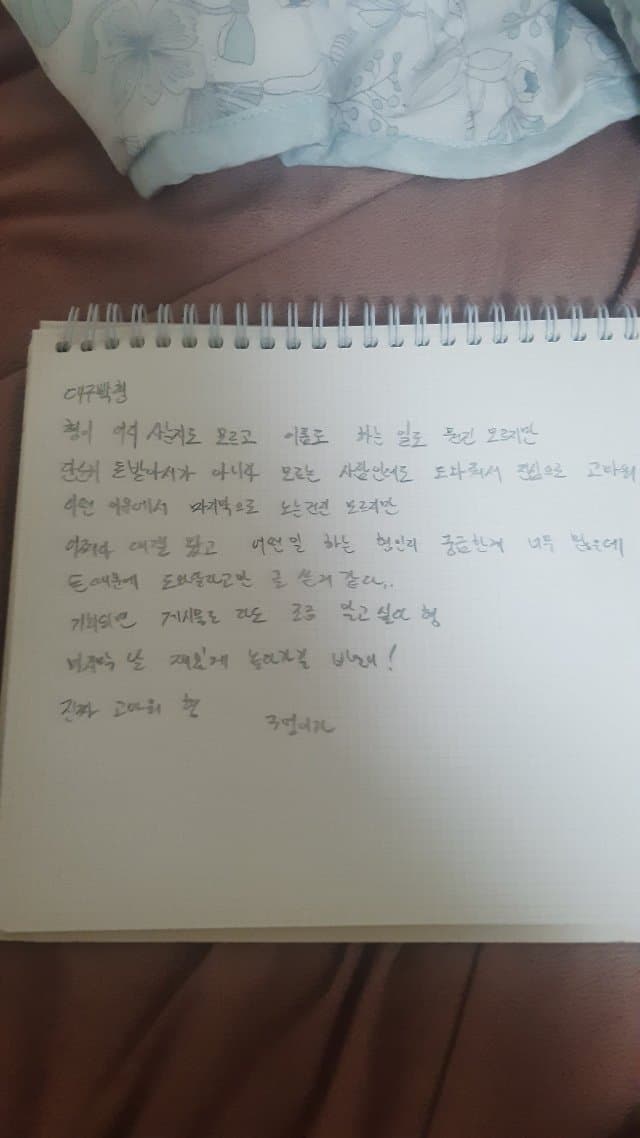 대구박형
형이 어디 사는지도 모르고 이름도 하는 일도 뭔진 모르지만
단순히 돈받아서가 아니라 모르는 사람인데도 도와줘서 진심으로 고마워
어떤 이유에서 마지막으로 노는건진 모르지만
어쩌다 대결 왔고 어떤일 하는 형인지 궁금한게 너무 많은데
돈때문에 도와달라고만 글 쓴거 같다..
기회되면 게시물로 라도 조금 알고싶어 형
마지막 날 재밌게 놀아가길 바래!
진짜 고마워 형
구멍이가